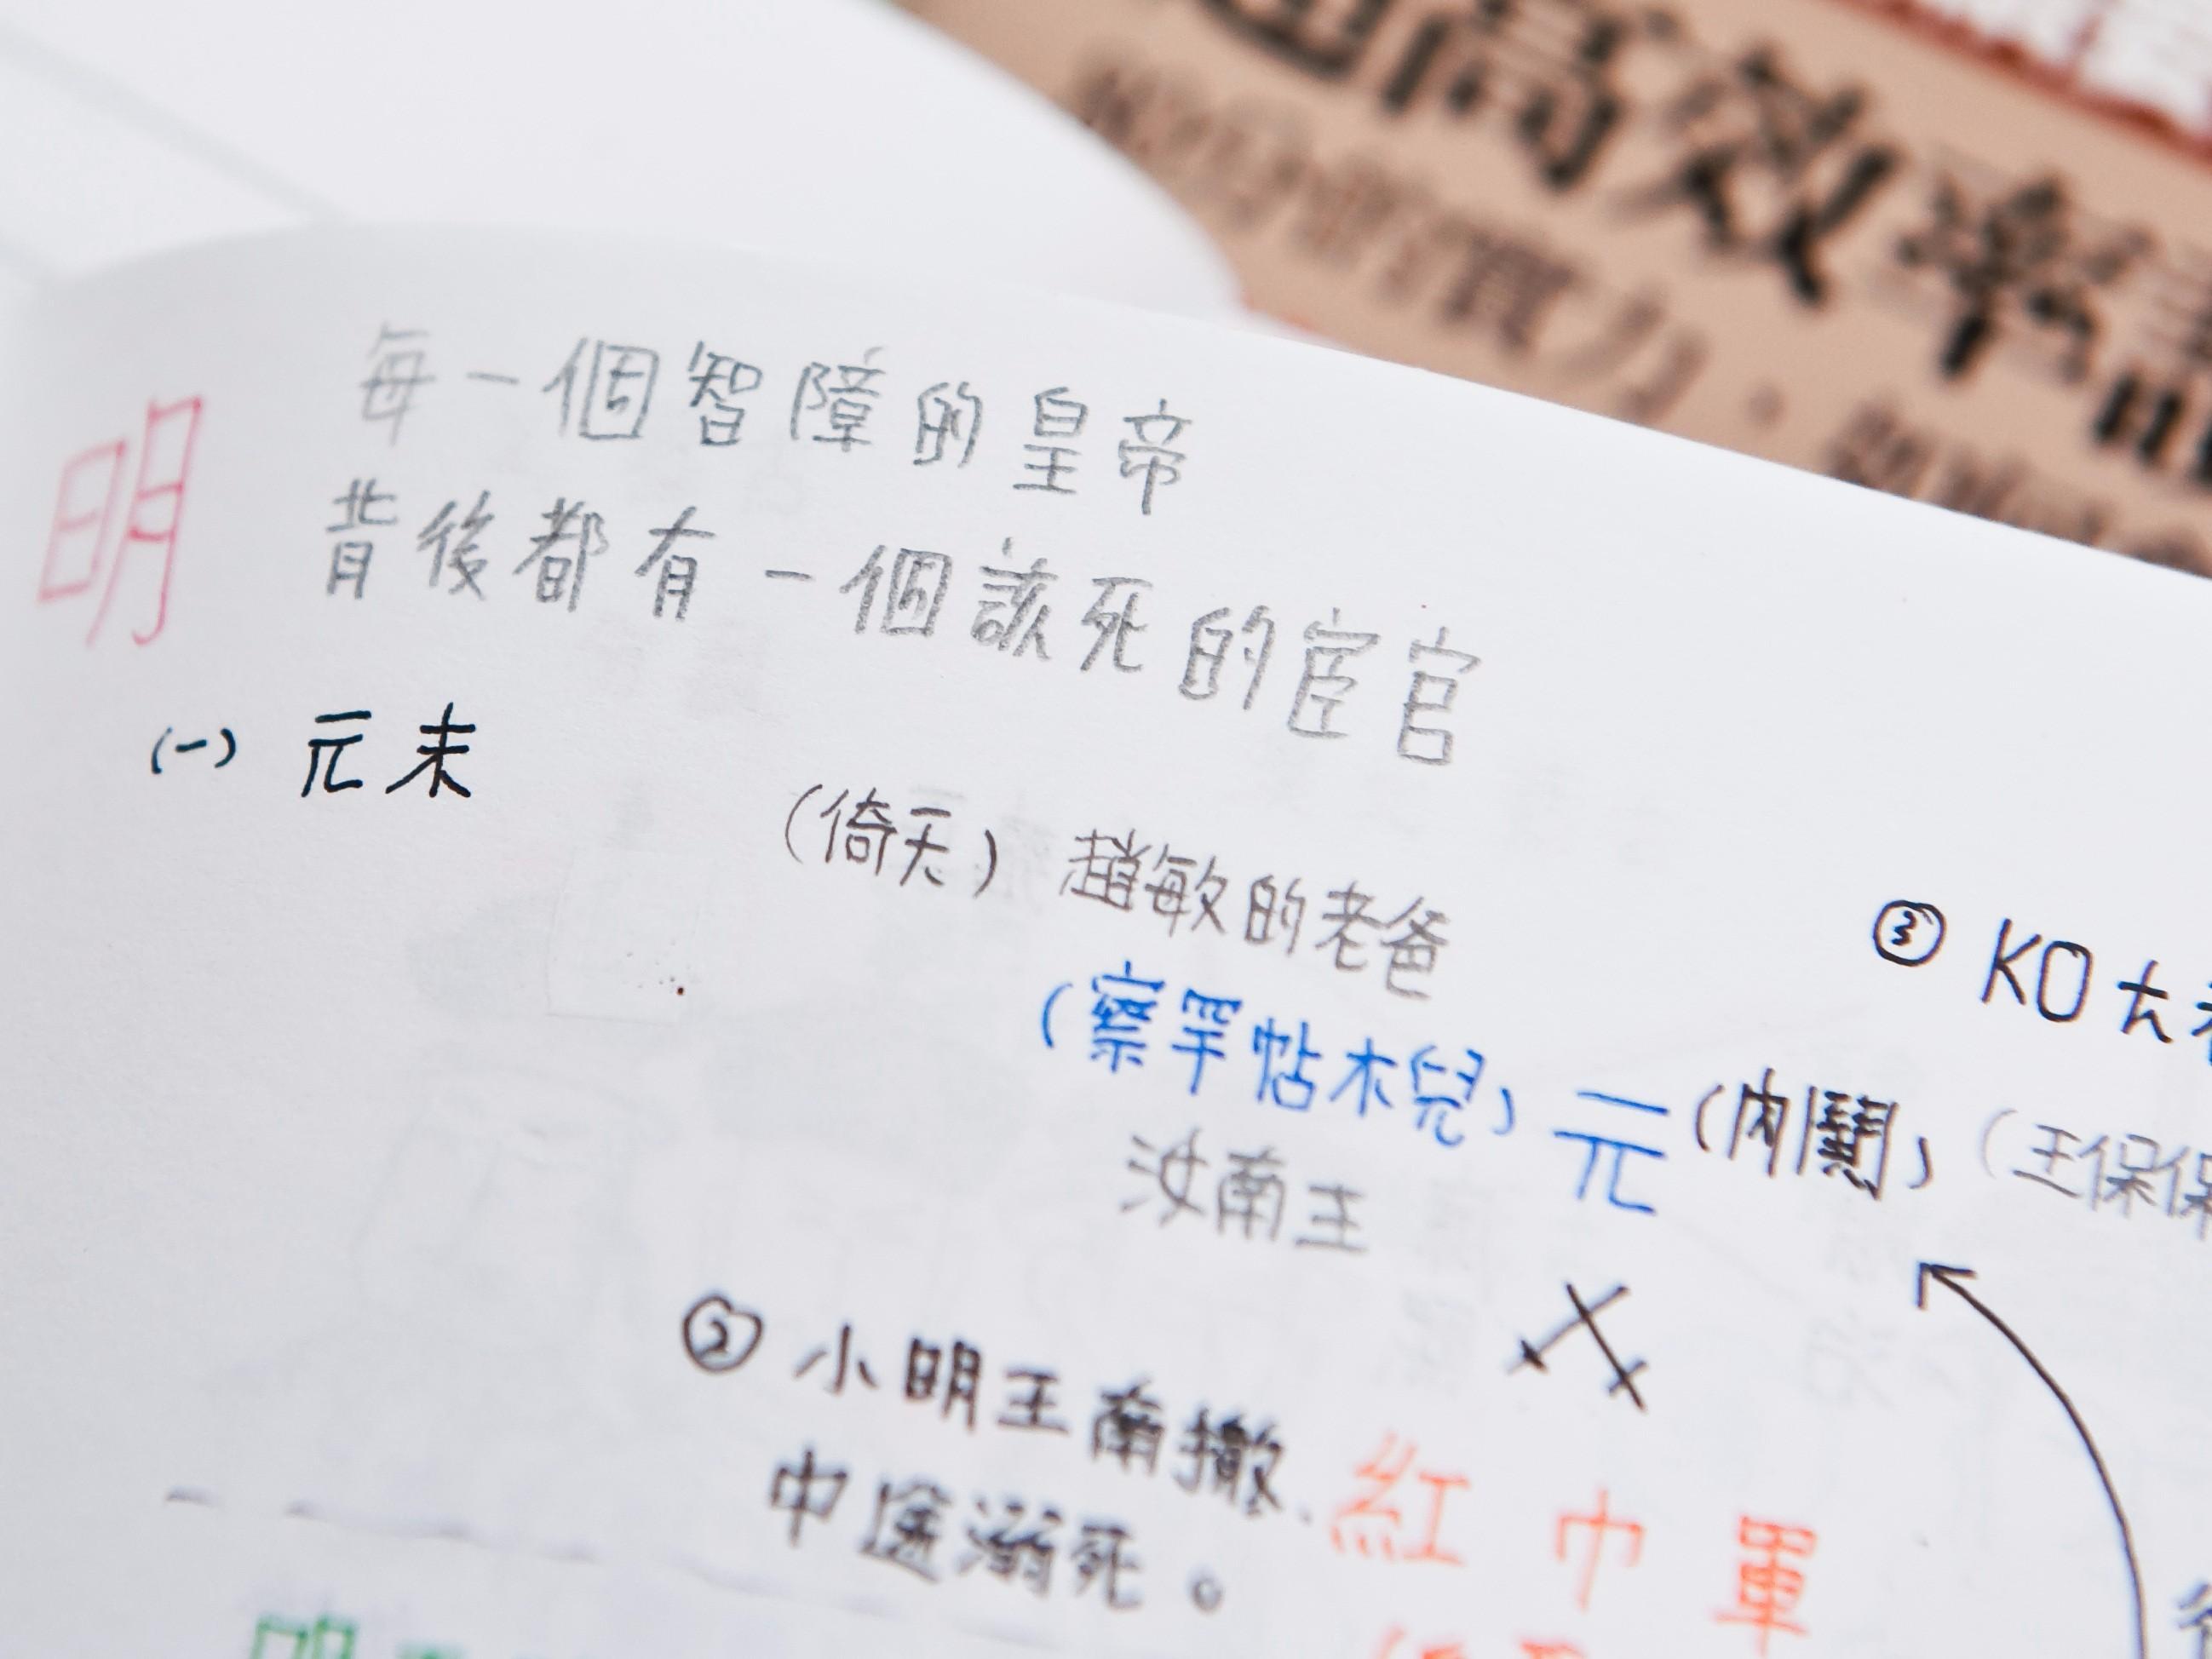 高效率
實力，
明
每一個智障的皇帝
背後都有一個該死的宦官
(一) 元末
(倚天) 趙敏的老爸
(察罕帖木兒) 元 (內鬨) (王保保
汝南王
③ KO大
② 小明王南撤、
中途溺死。
紅巾軍
明